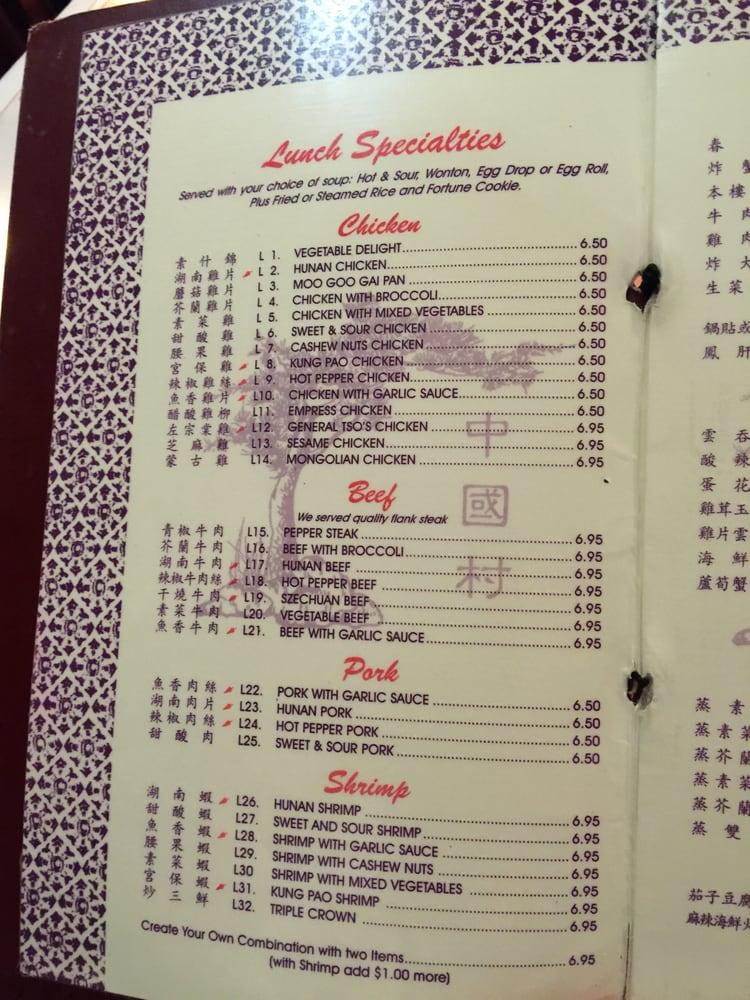 Lunch Specialties
Served with your choice of soup: Hot & Sour, Wonton, Egg Drop or Egg Roll,
Plus Fried or Steamed Rice and Fortune Cookie.
Chicken
素什錦 L 1. VEGETABLE DELIGHT 6.50
湖南雞片 L 2. HUNAN CHICKEN 6.50
蘑菇雞片 L 3. MOO GOO GAI PAN 6.50
芥蘭雞片 L 4. CHICKEN WITH BROCCOLI 6.50
素菜雞 L 5. CHICKEN WITH MIXED VEGETABLES 6.50
甜酸雞 L 6. SWEET & SOUR CHICKEN 6.50
腰果雞 L 7. CASHEW NUTS CHICKEN 6.50
宮保雞 L 8. KUNG PAO CHICKEN 6.50
辣椒雞絲 L 9. HOT PEPPER CHICKEN 6.50
魚香雞片 L10. CHICKEN WITH GARLIC SAUCE 6.50
醋酸雞柳 L11. EMPRESS CHICKEN 6.50
左宗棠雞 L12. GENERAL TSO'S CHICKEN 6.95
芝麻雞 L13. SESAME CHICKEN 6.95
蒙古雞 L14. MONGOLIAN CHICKEN 6.95
Beef
We served quality flank steak
青椒牛肉 L15. PEPPER STEAK 6.95
芥蘭牛肉 L16. BEEF WITH BROCCOLI 6.95
湖南牛肉 L17. HUNAN BEEF 6.95
辣椒牛肉絲 L18. HOT PEPPER BEEF 6.95
干燒牛肉 L19. SZECHUAN BEEF 6.95
素菜牛肉 L20. VEGETABLE BEEF 6.95
魚香牛肉 L21. BEEF WITH GARLIC SAUCE 6.95
Pork
魚香肉絲 L22. PORK WITH GARLIC SAUCE 6.50
湖南肉片 L23. HUNAN PORK 6.50
辣椒肉絲 L24. HOT PEPPER PORK 6.50
甜酸肉 L25. SWEET & SOUR PORK 6.50
Shrimp
湖南蝦 L26. HUNAN SHRIMP 6.95
甜酸蝦 L27. SWEET AND SOUR SHRIMP 6.95
魚香蝦 L28. SHRIMP WITH GARLIC SAUCE 6.95
腰果蝦 L29. SHRIMP WITH CASHEW NUTS 6.95
素菜蝦 L30 SHRIMP WITH MIXED VEGETABLES 6.95
宮保蝦 L31. KUNG PAO SHRIMP 6.95
炒三鮮 L32. TRIPLE CROWN 6.95
Create Your Own Combination with two Items 6.95
(with Shrimp add $1.00 more)
中
國
村
春
炸蟹
本樓
牛肉
雞肉
炸大
生菜
鍋貼或
鳳肝
雲吞
酸辣
蛋花
雞茸玉
雞片雲
海鮮
蘆筍蟹
蒸素
蒸素菜
蒸芥蘭
蒸素菜
蒸芥蘭
蒸雙
茄子豆腐
麻辣海鮮